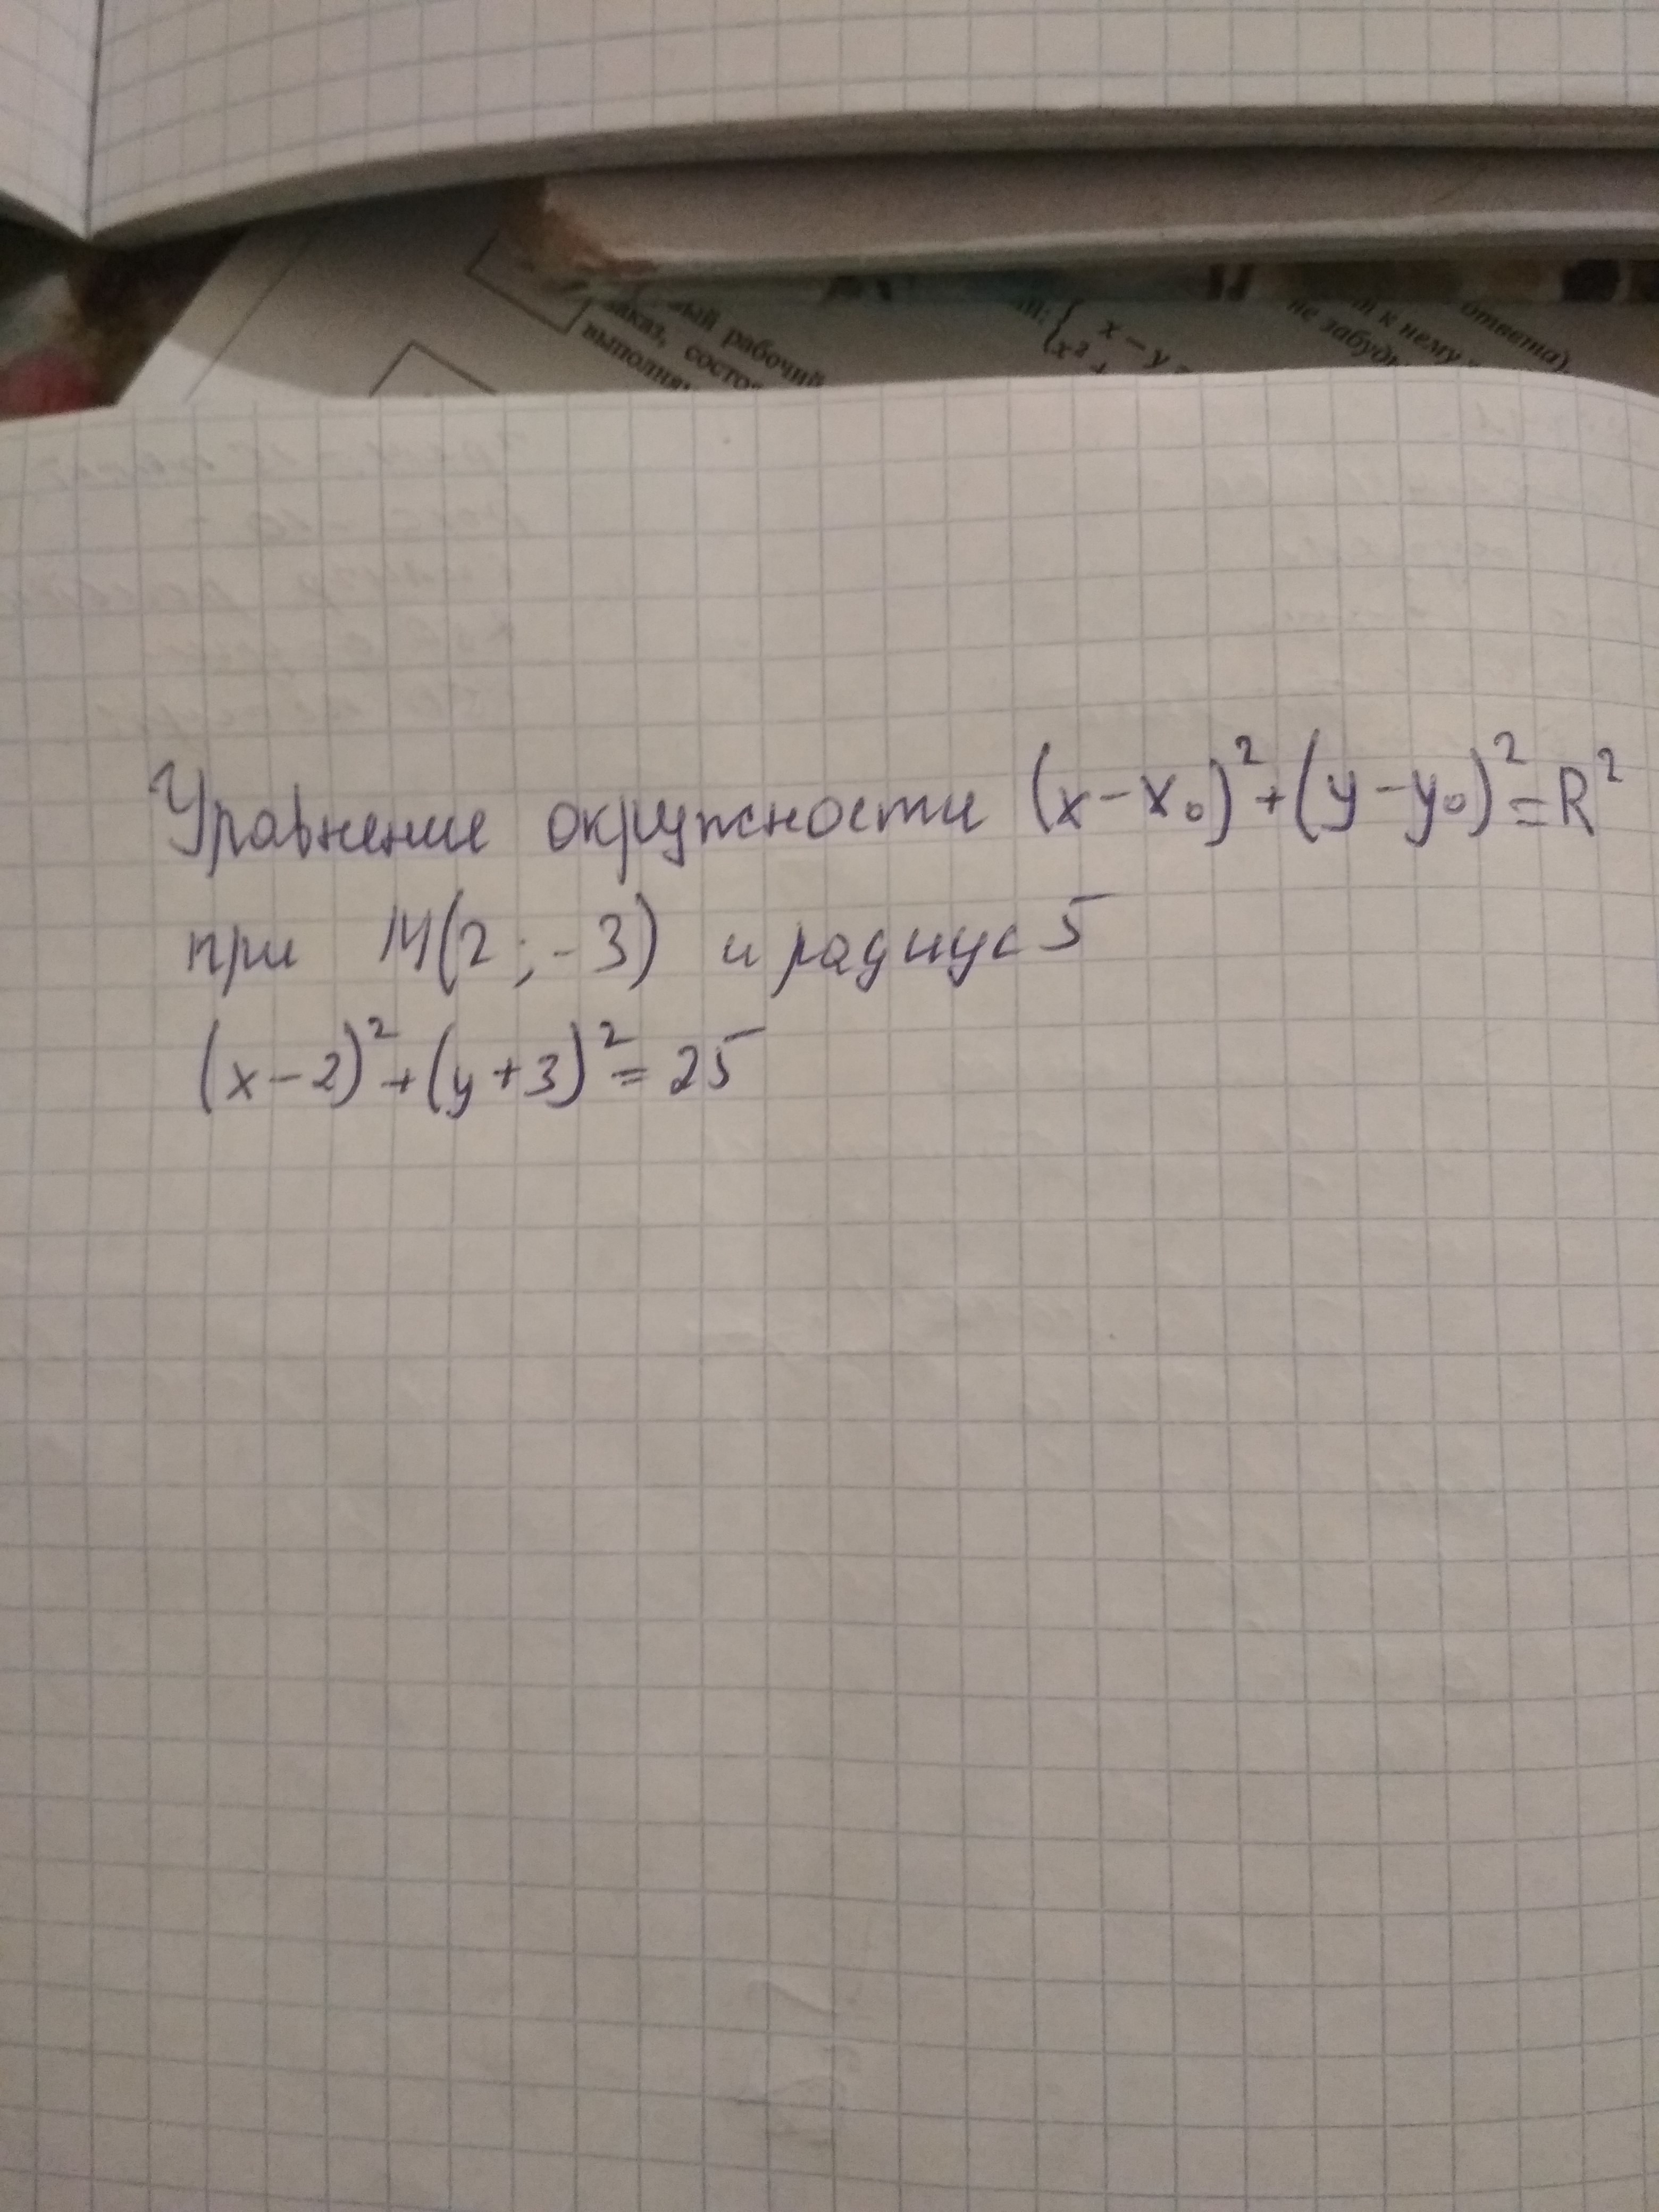 ный рабочий
заказ, состо
выполня
x − y =
x² +
ответа).
т к нему
не забудь
Уравнение окружности (x − x₀)² + (y − y₀)² = R²
при M(2 ; −3) и радиус 5
(x − 2)² + (y + 3)² = 25